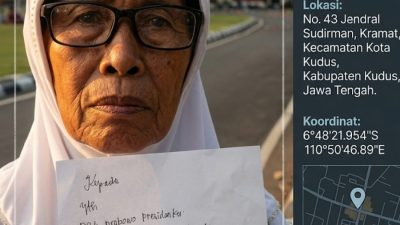 Lokasi:
No. 43 Jendral
Sudirman, Kramat,
Kecamatan Kota
Kudus,
Kabupaten Kudus,
Jawa Tengah.
Koordinat:
6°48'21.954"S
110°50'46.89"E
Kepada
Yth
prabowo presidenku